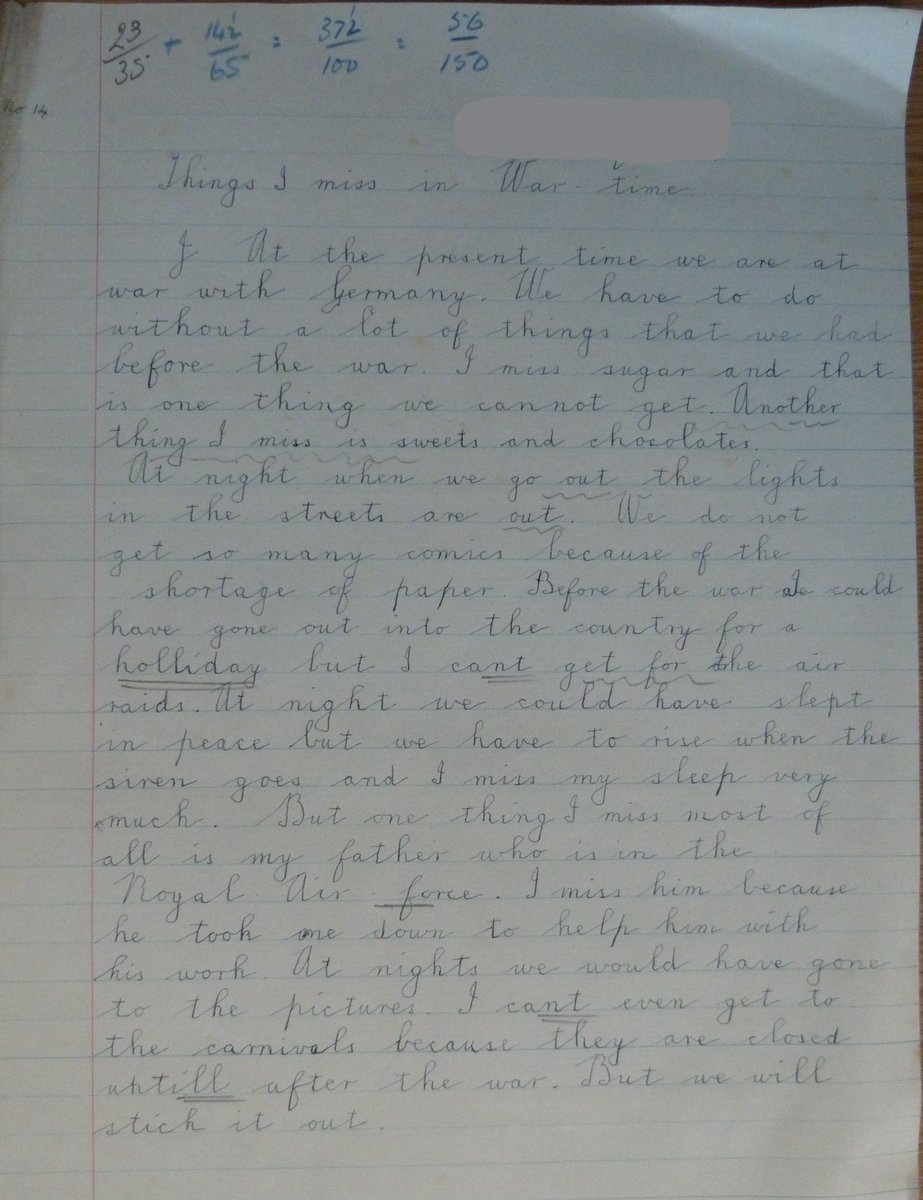 23/35 + 14½/65 = 37½/100 = 56/150
No 14
Things I miss in War-time.
I At the present time we are at
war with Germany. We have to do
without a lot of things that we had
before the war. I miss sugar and that
is one thing we cannot get. Another
thing I miss is sweets and chocolates.
At night when we go out the lights
in the streets are out. We do not
get so many comics because of the
shortage of paper. Before the war we could
have gone out into the country for a
holliday but I cant get for the air
raids. At night we could have slept
in peace but we have to rise when the
siren goes and I miss my sleep very
much. But one thing I miss most of
all is my father who is in the
Royal Air force. I miss him because
he took me down to help him with
his work. At nights we would have gone
to the pictures. I cant even get to
the carnivals because they are closed
untill after the war. But we will
stick it out.